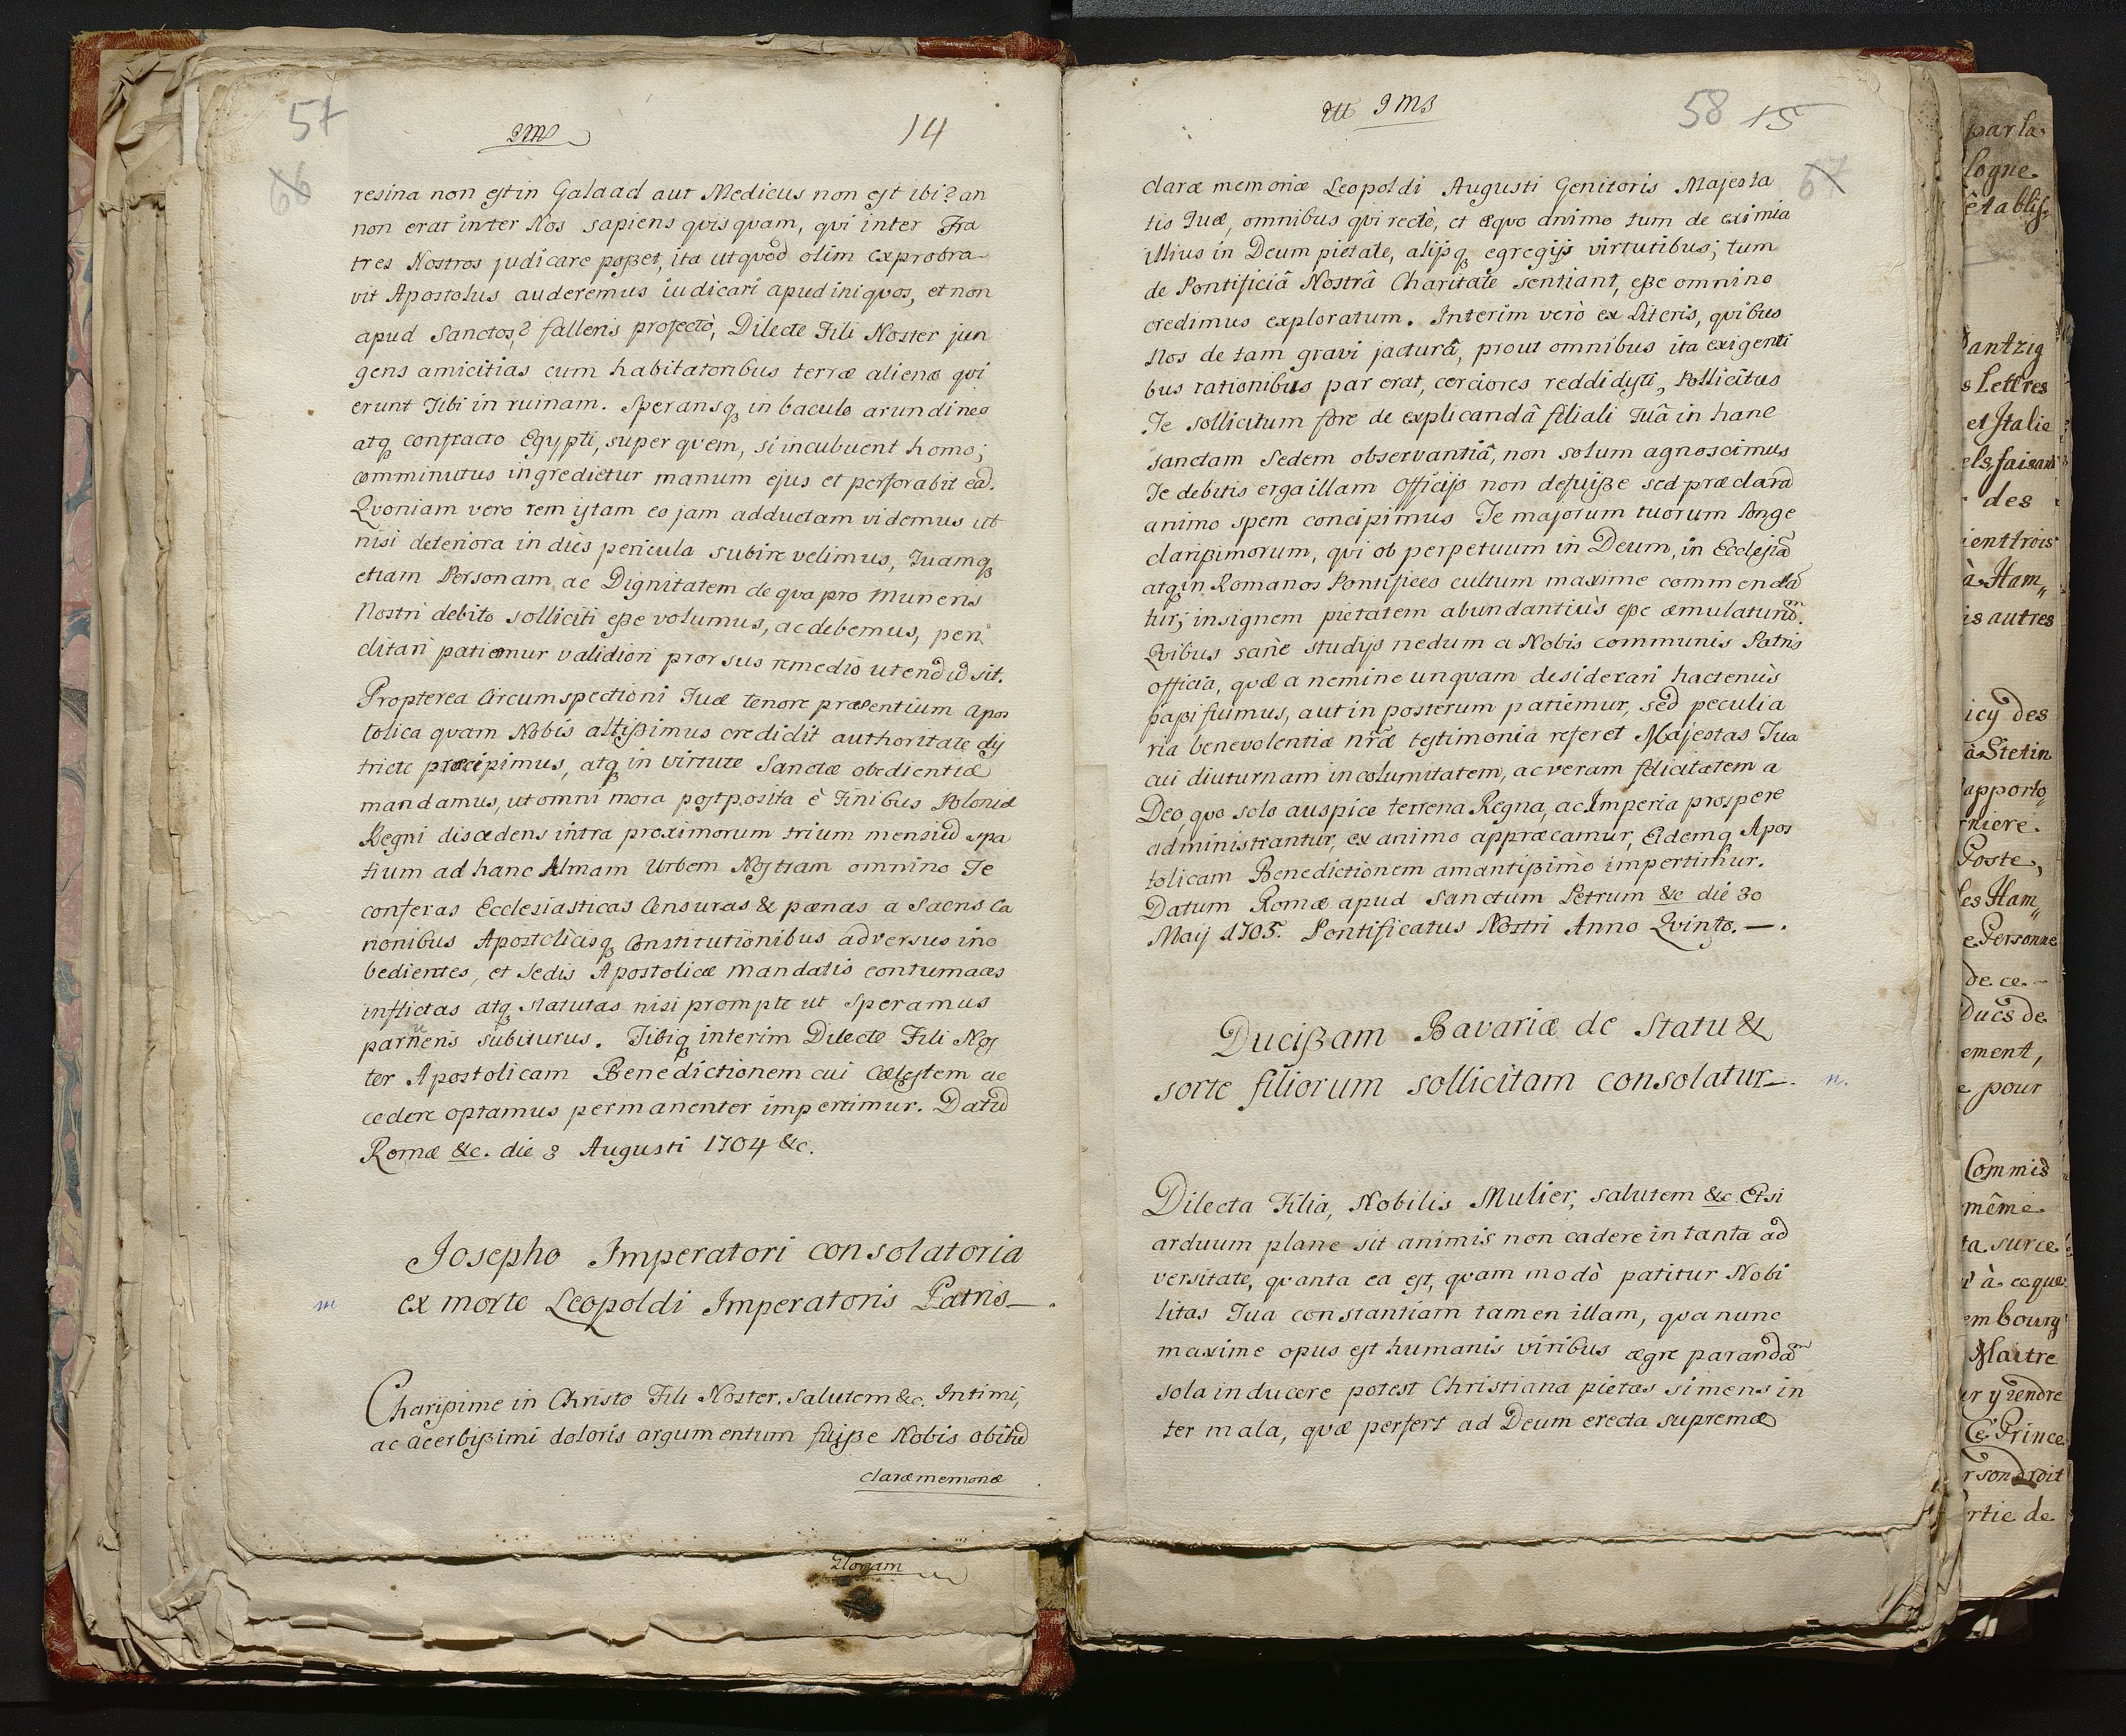 57
14
66
resina non est in Galaad aut Medicus non est ibi? an
non erat inter Nos sapiens quisquam, qvi inter Fra
tres Nostros judicare poßet, ita ut qvod olim exprobra
vit Apostolus auderemus iudicari apud iniqvos, et non
apud Sanctos? falleris profectò, Dilecte Fili Noster jun
gens amicitias cum habitatoribus terræ alienæ qvi
erunt Tibi in ruinam. Speransq in baculo arundineo
atq confracto Egypti, super qvem, si incubuent homo;
comminutus ingredietur manum ejus et perforabit eã.
Qvoniam vero rem istam eo jam adductam videmus ut
nisi deteriora in dies pericula subire velimus, Tuamq
etiam Personam, ac Dignitatem de qva pro muneris
Nostri debito solliciti eße volumus, ac debemus, peri
clitari patiemur validiori prorsus remedio utendũ sit.
Propterea Circumspectioni Tuæ tenore præsentium Apos
tolica qvam Nobis altißimus credidit authoritate dis
tricte præcipimus, atq in virtute Sanctæ obedientiæ
mandamus, ut omni mora postposita è Finibus Poloniæ
Regni discedens intra proximorum trium mensiũ spa
tium ad hanc Almam Urbem Nostram omnino Te
conferas Ecclesiasticas Censuras & pænas a Sacris Ca
nonibus Apostolicisq Constitutionibus adversus ino
bedientes, et Sedis Apostolicæ mandatis contumaces
inflictas atq statutas nisi prompte ut speramus
parueris subiturus. Tibiq interim Dilecte Fili Nos
ter Apostolicam Benedictionem cui Cælestem ac
cedere optamus permanenter impertimur. Datũ
Romæ &c. die 3 Augusti 1704 &c.
Josepho Imperatori consolatoria
m ex morte Leopoldi Imperatoris Patris.
Charißime in Christo Fili Noster. Salutem &c. Intimi,
ac acerbißimi doloris argumentum fuiße Nobis obitũ
claræ memoriæ
58 15
67
claræ memoriæ Leopoldi Augusti Genitoris Majesta
tis Tuæ, omnibus qvi rectè, et æqvo animo tum de eximia
illius in Deum pietate, alijsq egregijs virtutibus; tum
de Pontificiâ Nostrâ Charitate sentiant, eße omnino
credimus exploratum. Interim verò ex Literis, qvibus
Nos de tam gravi jacturâ, prout omnibus ita exigenti
bus rationibus par erat, cerciores reddidisti, Pollicitus
Te sollicitum fore de explicandâ filiali Tuâ in hanc
sanctam Sedem observantiâ, non solum agnoscimus
Te debitis erga illam Officijs non defuiße sed præclarã
animo spem concipimus Te majorum tuorum longe
clarißimorum, qvi ob perpetuum in Deum, in Ecclesiã
atq in Romanos Pontifices cultum maxime commendã
tur; insignem pietatem abundantiùs eße æmulaturum.
Qvibus sanè studijs nedum a Nobis communis Patris
officia, qvæ a nemine unqvam desiderari hactenùs
paßi fuimus, aut in posterum patiemur, sed peculia
ria benevolentiæ nr̃æ testimonia referet Majestas Tua
cui diuturnam incolumitatem, ac veram felicitatem a
Deo, qvo solo auspice terrena Regna, ac Imperia prospere
administrantur, ex animo appræcamur, Eidemq Apos
tolicam Benedictionem amantißimo impertimur.
Datum Romæ apud Sanctum Petrum &c die 30
Maij 1705. Pontificatus Nostri Anno Qvinto. —.
Ducißam Bavariæ de Statu &
sorte filiorum sollicitam consolatur. n.
Dilecta Filia, Nobilis Mulier, salutem &c. Etsi
arduum plane sit animis non cadere in tanta ad
versitate, qvanta ea est, qvam modò patitur Nobi
litas Tua constantiam tamen illam, qva nunc
maxime opus est humanis viribus ægre parandam
sola inducere potest Christiana pietas si mens in
ter mala, qvæ perfert ad Deum erecta supremæ
par la
logne
établis
antzig
s Lettres
et Italie
els, faisant
des
ient trois
à Ham„
is autres
icy des
à Stetin
apporto
rniere.
Poste,
les Ham„
e Personne
de ce
Ducs de
ement,
e pour
Commis
même
ta surce
t à ce que
embourg
Maitre
er y rendre
Ce Prince
r son droit
rtie de